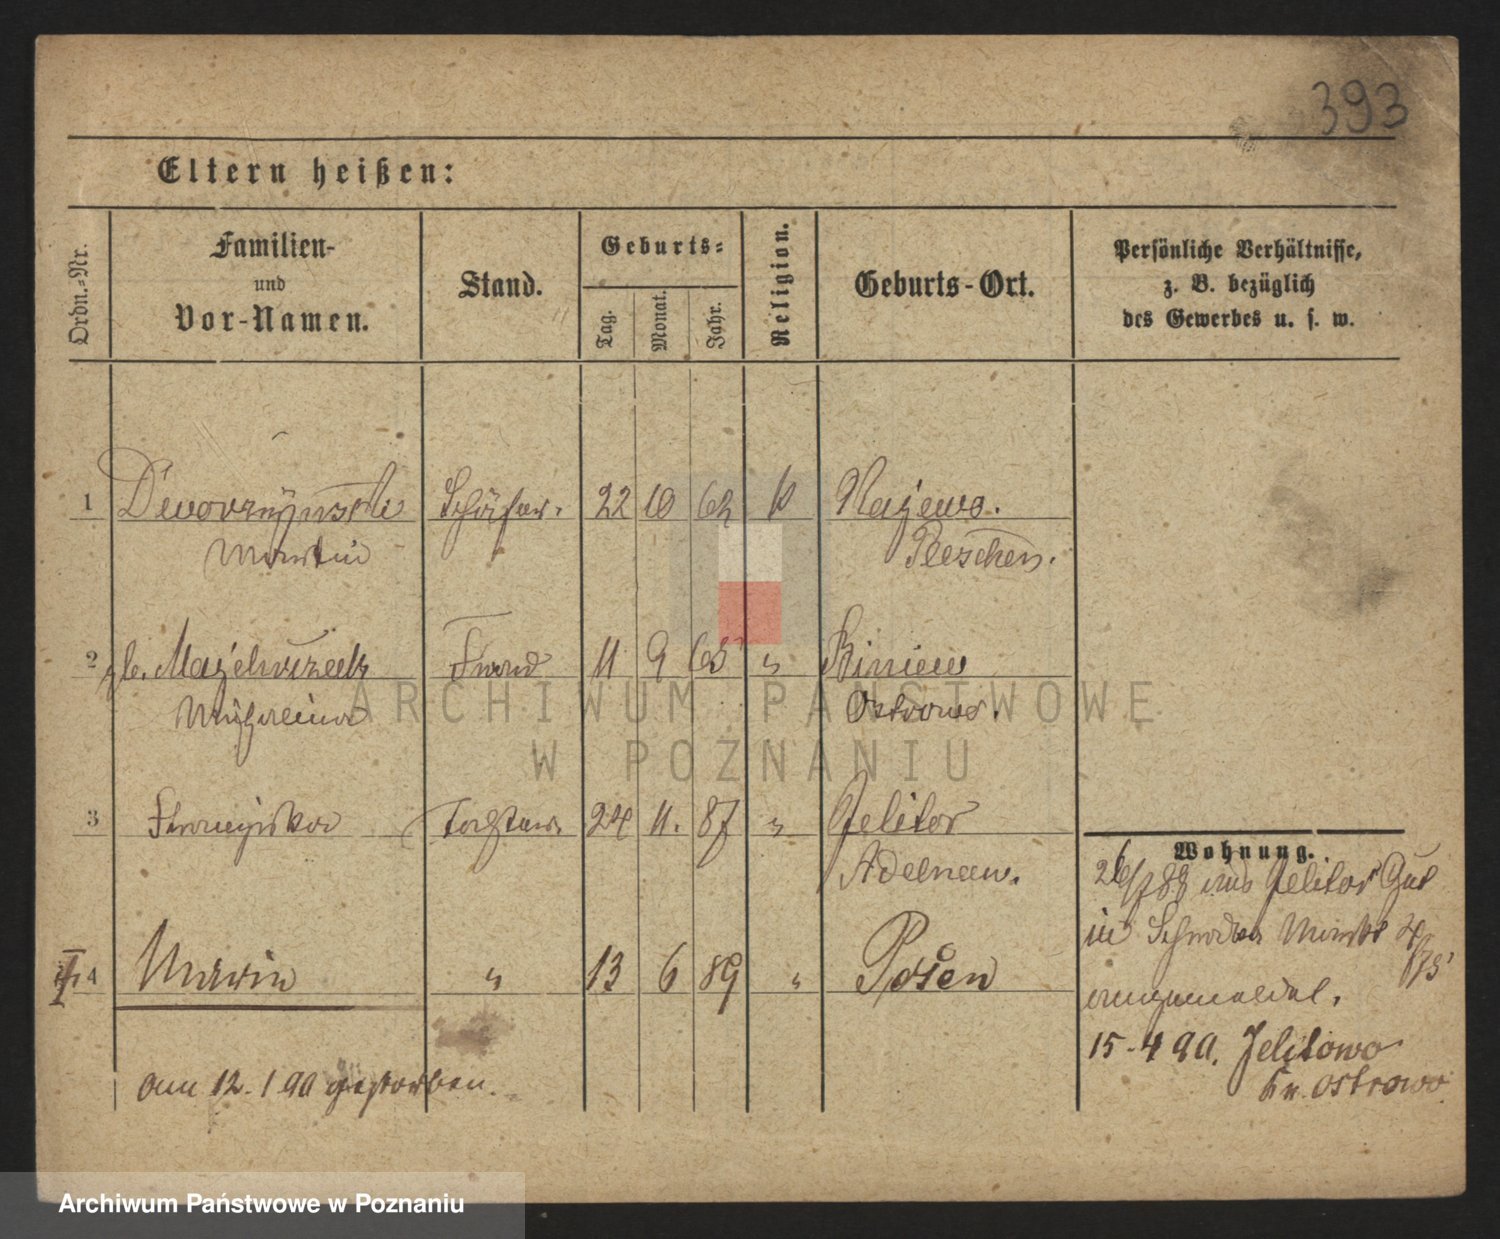 393
Eltern heißen:
Ordn.-Nr.
Familien-
und
Vor-Namen.
Stand.
Geburts-
Tag.
Monat.
Jahr.
Religion.
Geburts-Ort.
Persönliche Verhältnisse,
z. B. bezüglich
des Gewerbes u. s. w.
1 Schäfer. 22 10 62 k
Martin Pleschen.
2 Frau 11 9 65 "
Ostrowo.
3 Franziska Tochter 24 11. 87 " Jelitow
Adelnau.
4 Maria " 13 6 89 " Posen
am 12. 1 90 gestorben.
Wohnung.
26/7 88 aus Jelitow Gut
in Markt 4/
angemeldet.
15-4 90. Jelitowo
Kr. Ostrowo
ARCHIWUM PAŃSTWOWE
W POZNANIU
Archiwum Państwowe w Poznaniu